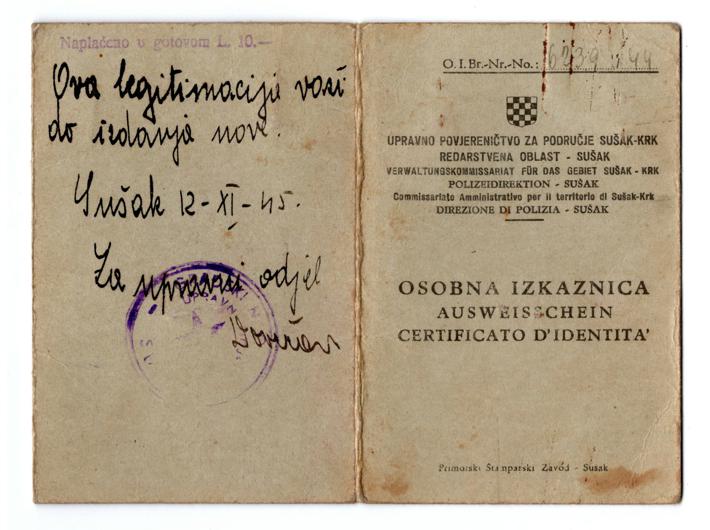 Naplaćeno u gotovom L. 10.—
Ova legitimacija važi
do izdanja nove.
Sušak 12-XI-45.
Za upravni odjel
O. I. Br.-Nr.-No.: 6239 44
UPRAVNO POVJERENIČTVO ZA PODRUČJE SUŠAK-KRK
REDARSTVENA OBLAST - SUŠAK
VERWALTUNGSKOMMISSARIAT FÜR DAS GEBIET SUŠAK - KRK
POLIZEIDIREKTION - SUŠAK
Commissariato Amministrativo per il territorio di Sušak-Krk
DIREZIONE DI POLIZIA - SUŠAK
OSOBNA IZKAZNICA
AUSWEISSCHEIN
CERTIFICATO D'IDENTITA'
Primorski Štamparski Zavod - Sušak